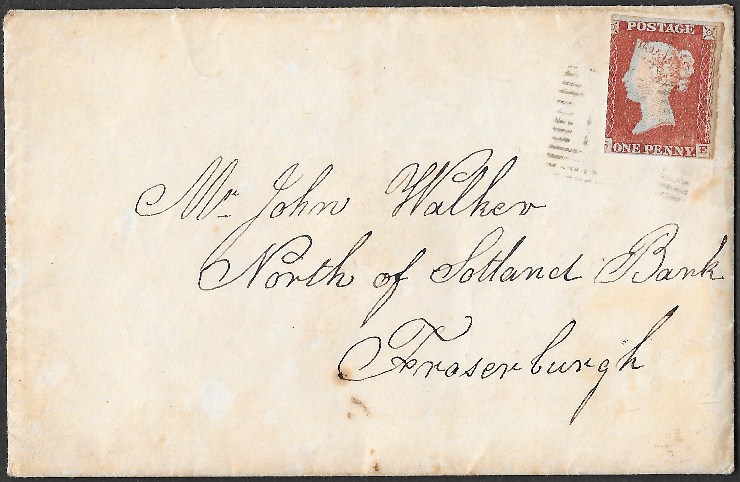 POSTAGE
ONE PENNY.
E
Mr John Walker
North of Sotland Bank
Fraserburgh